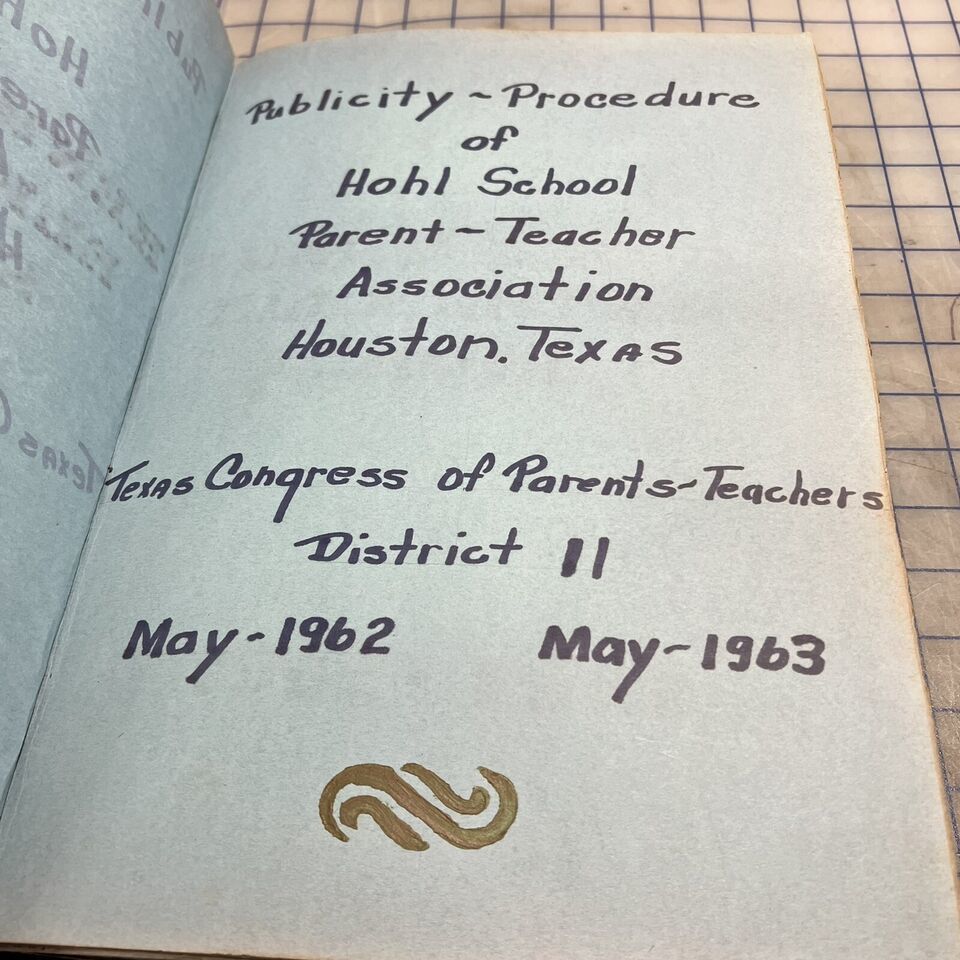 Publicity ~ Procedure
of
Hohl School
Parent ~ Teacher
Association
Houston. Texas
Texas Congress of Parents ~ Teachers
District 11
May - 1962 May ~ 1963